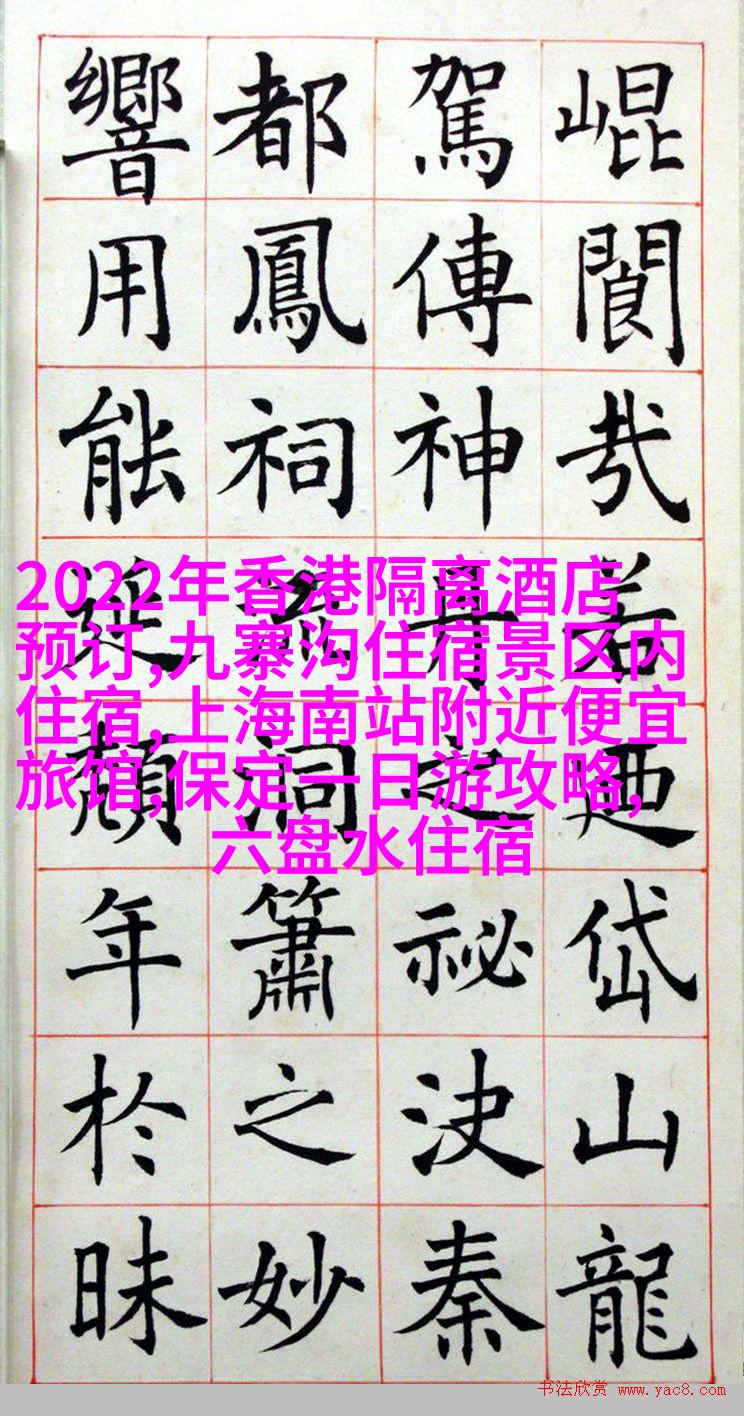 崐閬哉若廼岱山龍
駕傳神丹之祕決秦
都鳳祠流洞簫之妙
響用能延頽年於昧
2022年香港隔离酒店
预订,九寨沟住宿景区内
住宿,上海南站附近便宜
旅馆,保定一日游攻略,
六盘水住宿
书法欣赏 www.yac8.com